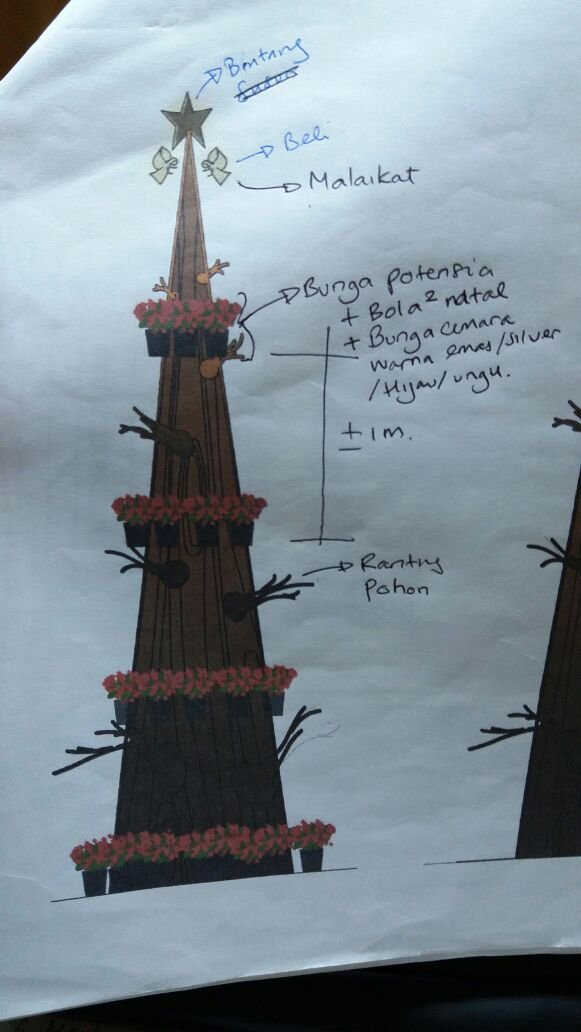 Bintang
Beli
Malaikat
Bunga potensia
+ Bola² natal
+ Bunga cemara
warna emas/silver
/Hijau/ungu.
± 1 m.
Ranting
Pohon